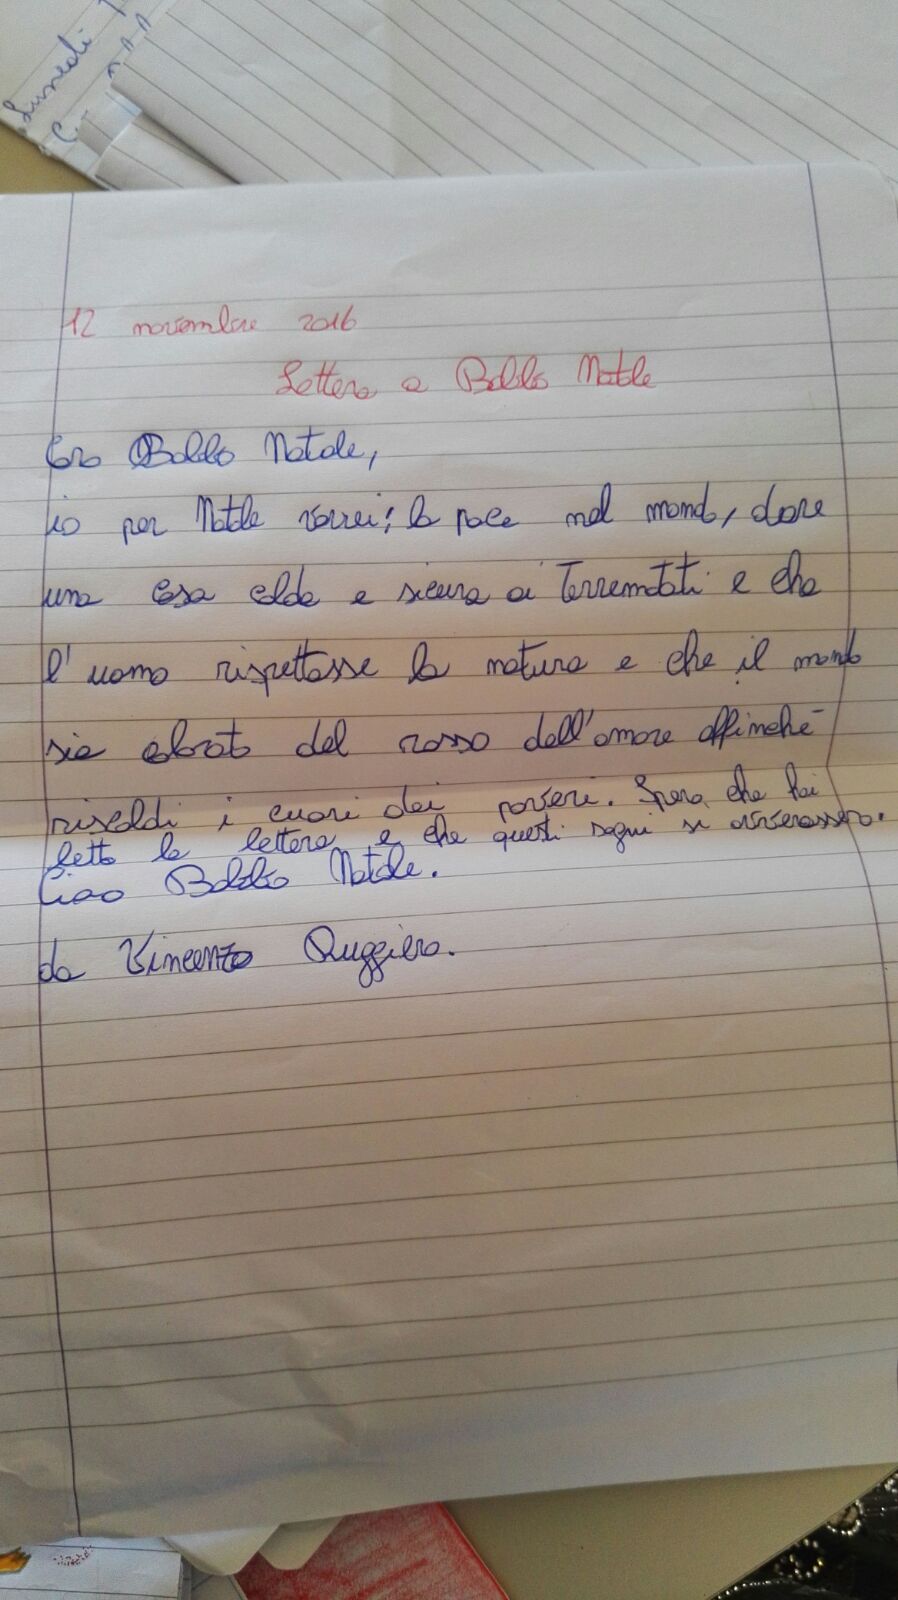 Lunedì
12 novembre 2016
Lettera a Babbo Natale
Caro Babbo Natale,
io per Natale vorrei: la pace nel mondo, dare
una casa calda e sicura ai Terremotati e che
l'uomo rispettasse la natura e che il mondo
sia colorato del rosso dell'amore affinchè
riscaldi i cuori dei poveri. Spero che hai
letto la lettera e che questi sogni si avverassero.
Ciao Babbo Natale.
da Vincenzo Ruggiero.